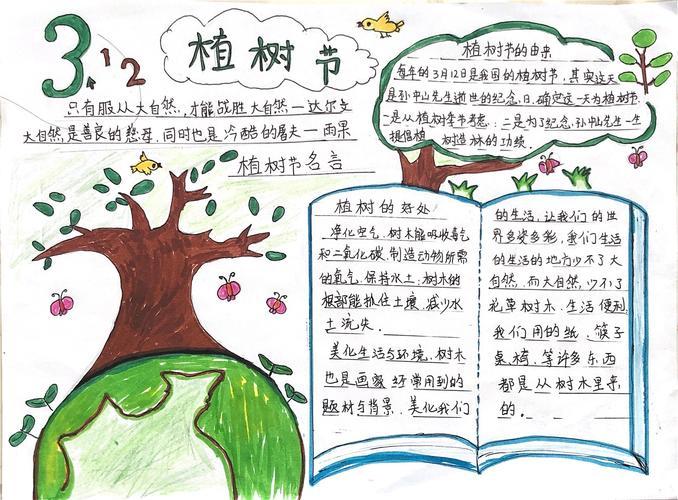 3 12
植树节
只有服从大自然,才能战胜大自然—达尔文
大自然是善良的慈母,同时也是冷酷的屠夫—雨果
植树节名言
植树节的由来
每年的3月12日是我国的植树节,其实这天
是孙中山先生逝世的纪念日,确定这一天为植树节,
一是从植树季节考虑:二是为了纪念孙中山先生一生
提倡植树造林的功绩.
植树的好处
净化空气,树木能吸收毒气
和二氧化碳,制造动物所需
的氧气.保持水土:树木的
根部能抓住土壤,减少水
土流失.
美化生活与环境,树木
也是画家经常用到的
题材与背景.美化我们
的生活,让我们的世
界多姿多彩,我们生活
的生活的地方少不了大
自然,而大自然,少不了
花草树木.生活便利.
我们用的纸、筷子
桌、椅、等许多东西
都是从树木里来
的.